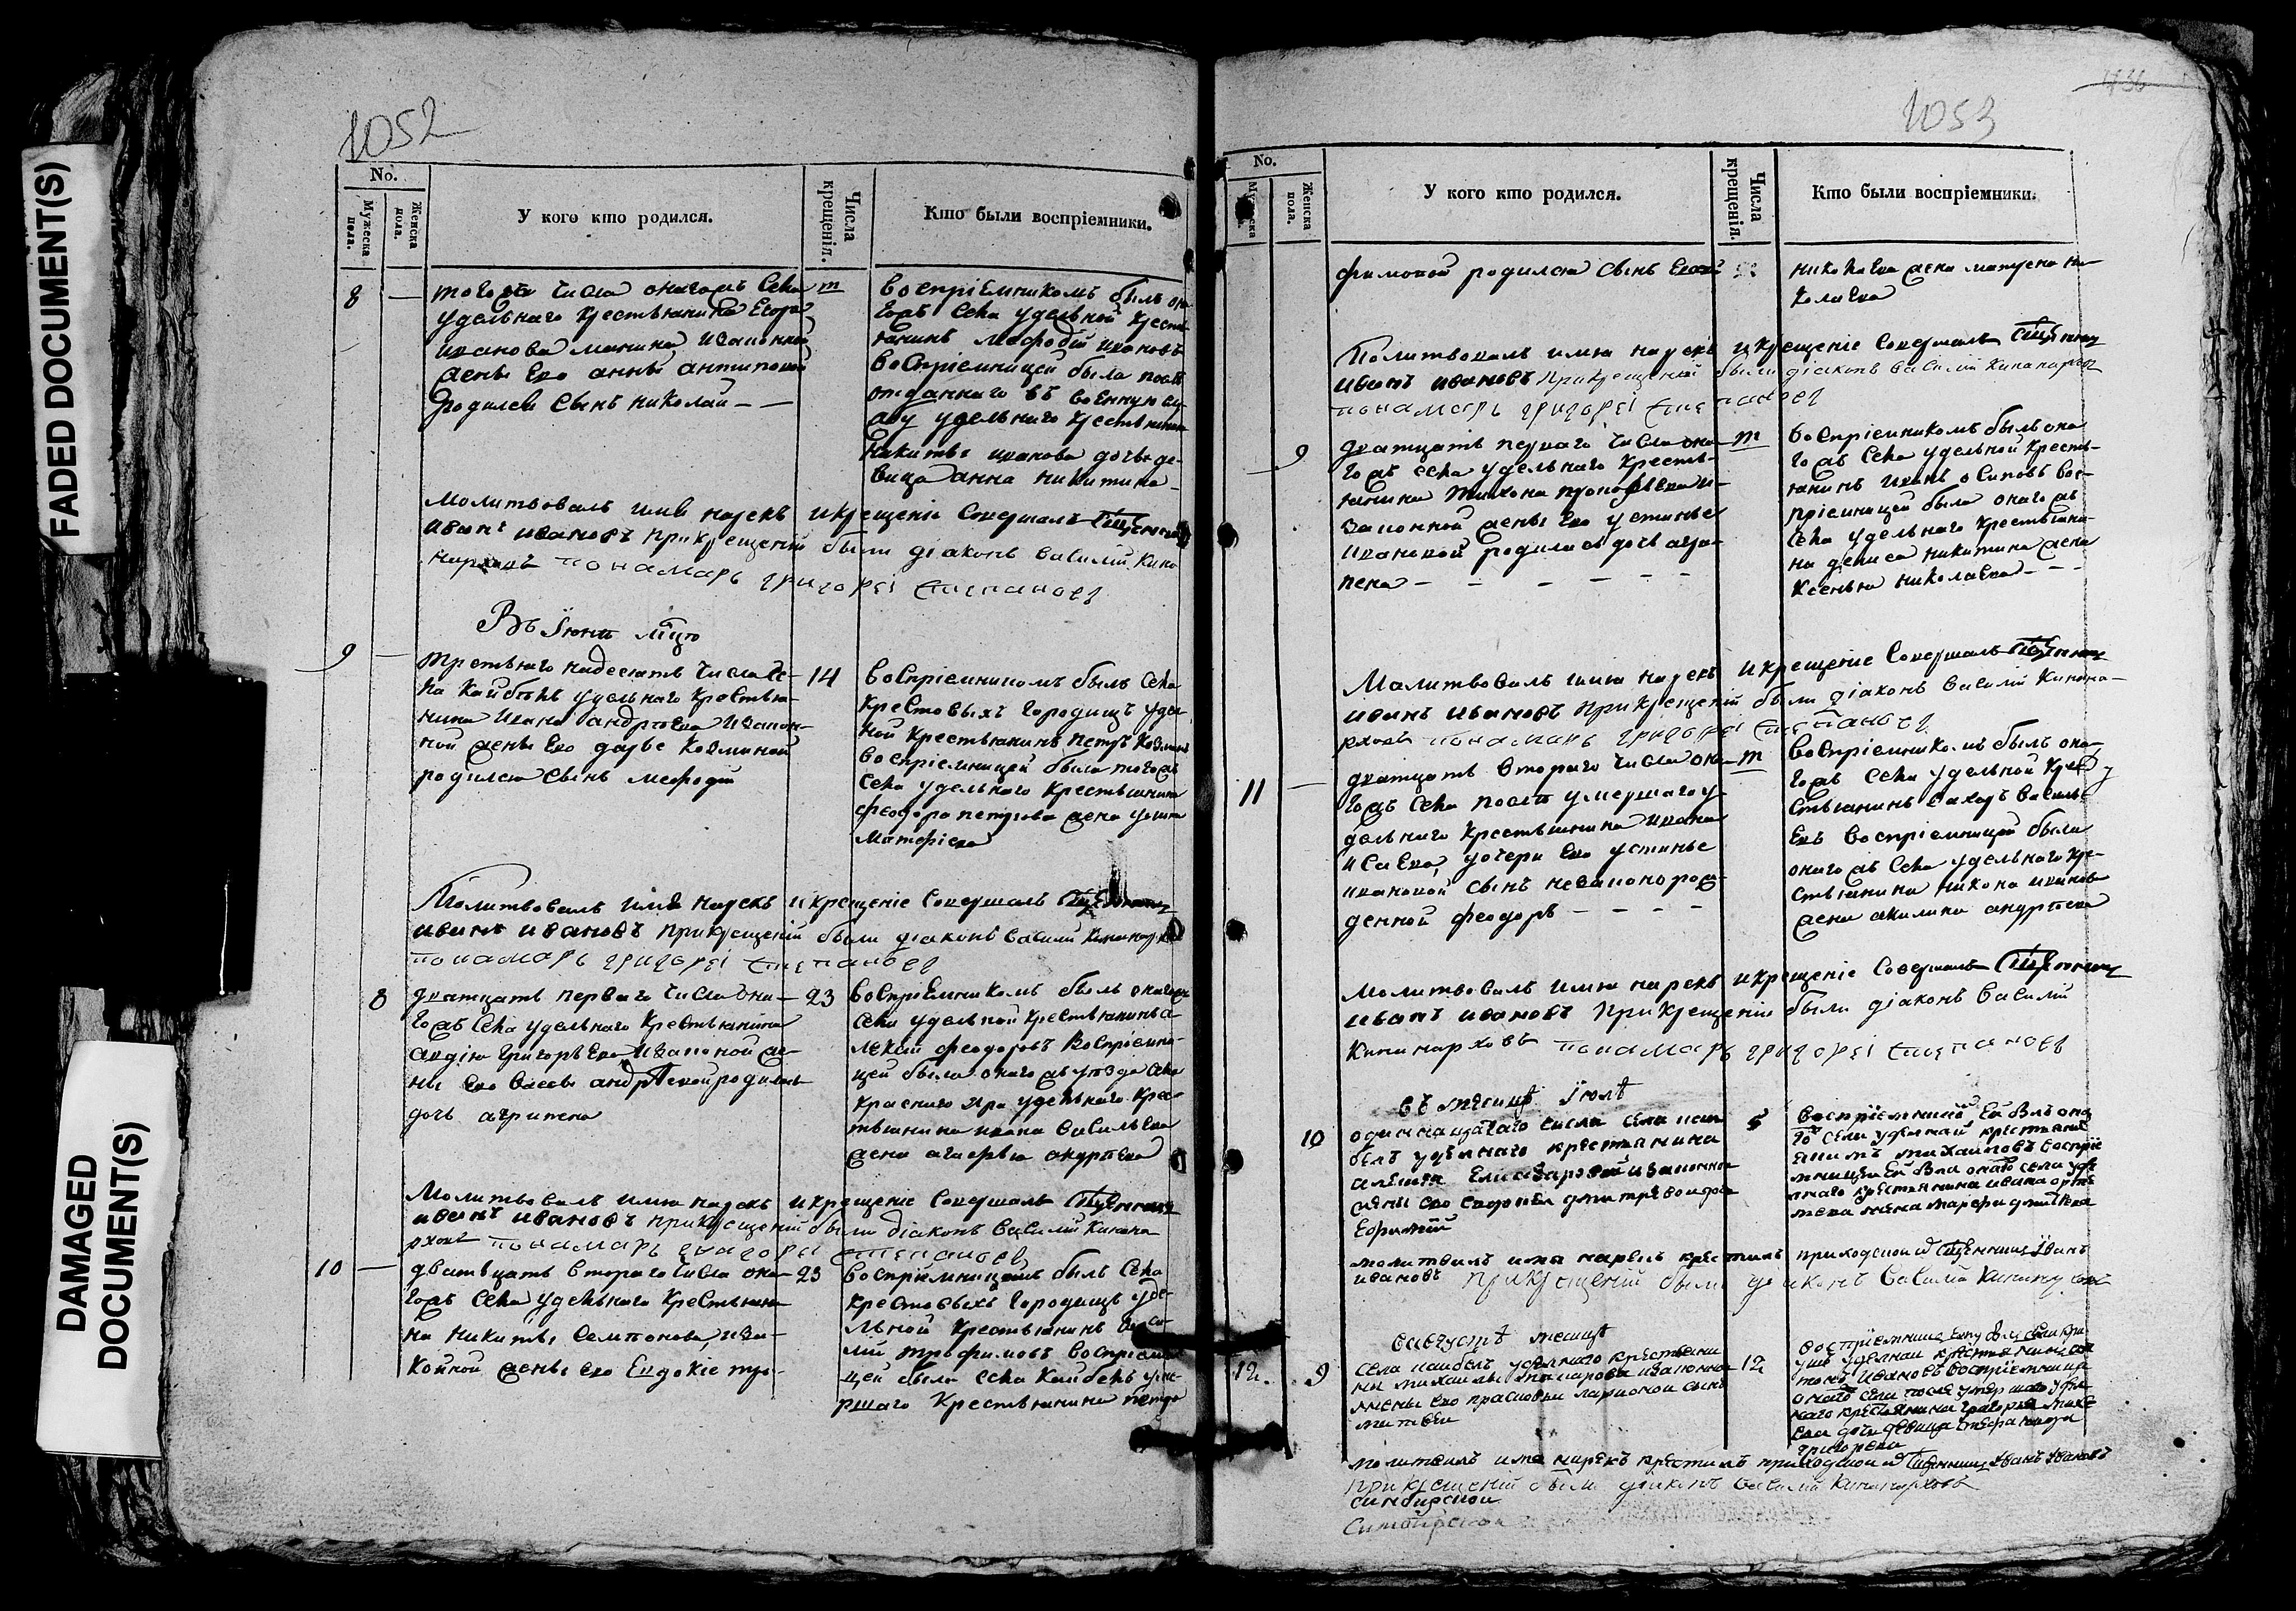 FADED DOCUMENT(S)
DAMAGED
DOCUMENT(S)
1052
No.
Мужеска пола.
Женска пола.
У кого кто родился.
Числа крещенія.
Кто были воспріемники.
8 —
тогожъ числа оногожъ Села
удельнаго крестьянина Егора
иванова манина изаконной
жены Его анны антиповой
родился Сынъ николай — —
т
воспріемникомъ былъ оно
гожъ Села удельной крестъ
янинъ мефодій ивановъ
воспріемницей была после
отданнаго въ военную слу
жбу удельнаго крестьянина
Никиты иванова дочь де-
вица анна никитина
молитвовалъ имя нарекъ и крещеніе Совершалъ Священникъ
иванъ ивановъ при крещеніи были діаконъ василій Кина
нарховъ понамарь григореі степановъ
Въ Іюни мцо
9 —
третьяго надесять числа Се-
ла Кайбелъ удельнаго крестья-
нина Ивана андреева изакон-
ной жены Его дарье козминой
родился Сынъ мефодій
14
воспріемникомъ былъ Села
крестовыхъ городищъ удел
ной крестьянинъ петръ козминъ
воспріемницей была тогожъ
Села удельнаго крестьянина
феодора петрова жена
матфіева
Молитвовалъ имя нарекъ и крещеніе Совершалъ Священникъ
иванъ ивановъ при крещеніи были діаконъ василій Кинанархо
понамарь григореі степановъ
8
дватцать перваго числа оно-
гожъ Села удельнаго крестьянина
авдія григорьева изаконой же-
ны Его андреевой родилась
дочь агрипена
23
воспріемникомъ былъ оногожъ
Села удельной крестьянинъ а
лексей феодоровъ воспріемни-
цей была оногожъ уезда Села
краснаго яра удельнаго кре-
тьянина ивана васильева
жена агафья андреева
Молитвовалъ имя нарекъ и крещеніе Совершалъ Священникъ
иванъ ивановъ при крещеніи были діаконъ василій Кинана
рховъ понамарь григореі степановъ
10 —
дватцать втораго числа оно-
гожъ Села удельнаго крестьяни
на никиты Семионова, иза-
конной жены его Евдокіе тро-
23
воспріемникомъ былъ Села
крестовыхъ городищъ уде-
льной крестьянинъ васи-
лій трофимовъ воспріемни
цей была села Кайбелъ уме-
ршаго крестьянина петра
1053
436
No.
Мужеска
Женска пола.
У кого кто родился.
Числа крещенія.
Кто были воспріемники.
фимовой родился Сынъ
николаева жена матрена ни
колаева
Молитвовалъ имя нарекъ и крещеніе Совершалъ Священникъ
иванъ ивановъ при крещеніи были діаконъ василій Кинанархов
понамарь григореі степановъ
9
дватцать перваго числа оно
гожъ села удельнаго кресть-
янина Тихона прокофьева и-
законной жены Его устинье
Ивановой родилась дочь агра-
пена — — — — — —
т
воспріемникомъ былъ оно
гожъ Села удельной кресть-
янинъ иванъ осиповъ вос-
пріемницей была оногожъ
Села удельнаго крестьяни-
на дениса никитина жена
Ксенья николаева — — —
Малитвовалъ имя нарекъ и крещеніе Совершалъ Священникъ
иванъ ивановъ при крещеніи были діаконъ василій Кинана-
рховъ понамарь григореі степановъ
11 —
дватцать втораго числа оно
гожъ Села после умершаго у-
дельнаго крестьянина ивана
исаева, дочери Его устинье
ивановой сынъ незаконорож-
денной феодоръ — — — —
т
воспріемникомъ былъ оно
гожъ Села удельной кре
стьянинъ захаръ василь
евъ воспріемницей была
оногожъ Села удельнаго кре-
стьянина никона иванова
жена акилина андреева
Молитвовалъ имя нарекъ и крещеніе Совершалъ Священникъ
иванъ ивановъ при крещеніи были діаконъ василій
Кинанарховъ понамарь григореі степановъ
въ месице Іюле
10
одиннацатаго числа села каи
белъ уделнаго крестянина
алексея Елисеіарова изаконно
жены его дмитревои дочь
Ефимии
воспріемникъ Ей былъ оно
го села уделнаи крестянинъ
михаиловъ воспріе
мницеи Еи была онаго села уде
лнаго крестянина ивана арте
мева жена марфа дмитрева
молитвилъ имя нарекъ крестилъ приходской Священникъ Іванъ
ивановъ при крещеніи были діаконъ василій Кинанархов
вавгусте месице
12.
9
села каибелъ уделнаго крестьяни
на михаилы макарова изаконно
жены его прасковьи ларионои сынъ
матвеи
12
воспріемникъ Ему былъ села кри
уше уделнаи крестянинъ
Ивановъ воспріемница
онаго села после умершаго удел
наго крестянина григорья михе
ева дочь девица стефанида
григорева
молитвилъ имя нарекъ крестилъ приходской Священникъ Іванъ Ивановъ
при крещеніи были діаконъ василій Кинанархов
симбирской
Симбирской